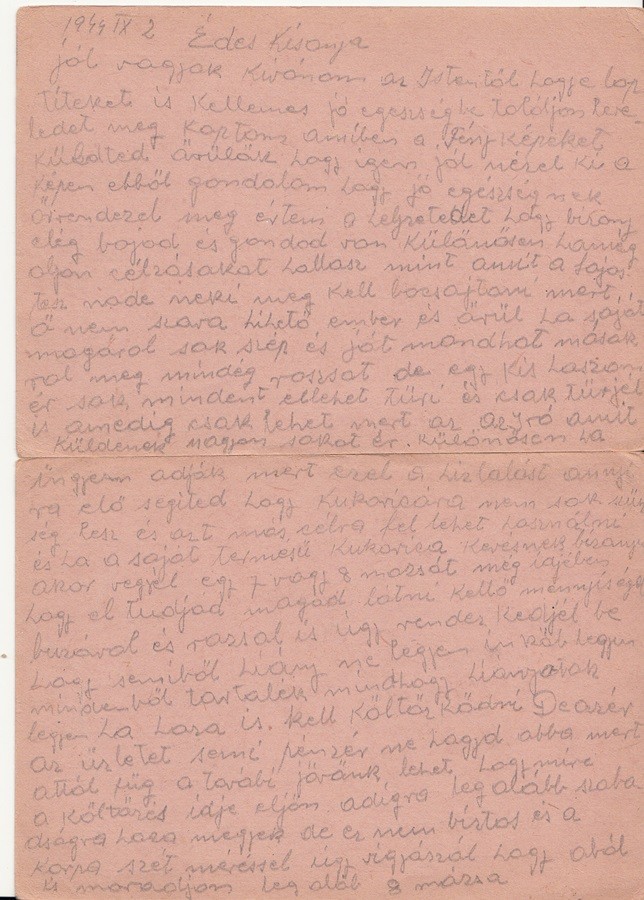 1944 IX 2 Édes Kisanya
jól vagyok Kivánom az Istentől hogy e lap
titeket is Kellemes jó egeszségbe találjon leve
ledet meg Kaptom amiben a Fény Képeket
Küldted örülök hogy igen jól nézel ki a
Képen ebből gondolom hogy jó egeszségnek
örvendezel meg értem a helyzetedet hogy bizony
elég bajod és gondod van Különösen ha még
oljan célzásokat hallasz mint amit a Lajos
tesz nade neki meg Kell bocsajtani mert
ő nem szava hihető ember és örül ha saját
magáról sok szép és jót mondhat mások
rol meg mindég rosszat de egy Kis haszon
ér sok mindent ellehet türi és csak türjél
is amedig csak lehet mert az amit
Küldenek nagyon sokat ér. Különösen ha
ingyen adják mert ezel a hizlalást annyi
ra elő segited hogy Kukoricára nem sok szük
ség lesz és azt más célra fel lehet használni
és ha a saját termésü Kukorica Kevésnek bizonyul
akor vegyél egy 7 vagy 8 mázsát még idejében
hogy el tudjad magad látni Kellő mennyiségű
buzával és rozsal is úgy rendez Kedjél be
hogy semiből hiány ne legyen inkább legyen
mindenből tartalék mindhogy hianyosak
legyen ha haza is. Kell Költöz Ködni De azér
az üzletet semi pénzér ne hagyd abba mert
attól füg a tovabi jövönk lehet hogy mire
a Költözés ideje eljön adigra legalább szaba
dságra haza megyek de ez nem biztos és a
Korpa szet méréssel úgy vigyázzál hogy aból
is maradjon leg alab 8 mázsa